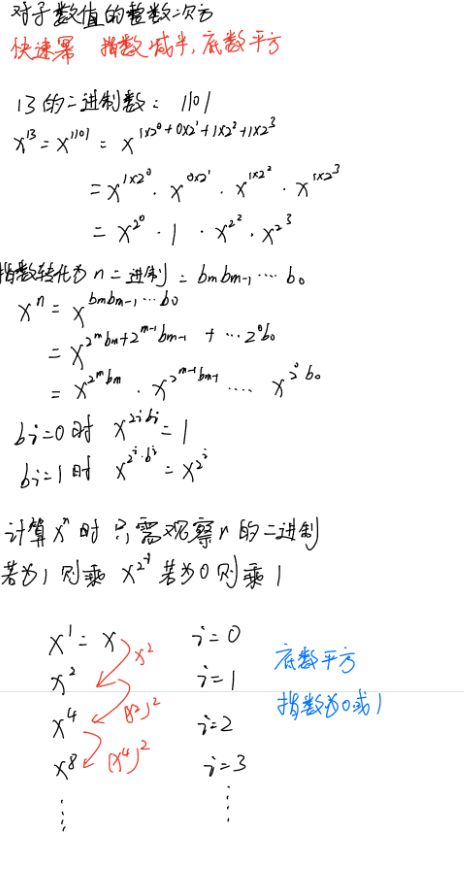 对于数值的整数次方
快速幂 指数减半,底数平方
13的二进制数: 1101
x¹³ = x^1101 = x^(1×2⁰+0×2¹+1×2²+1×2³)
= x^(1×2⁰) · x^(0×2¹) · x^(1×2²) · x^(1×2³)
= x^(2⁰) · 1 · x^(2²) · x^(2³)
指数转化为n二进制 = bmbm-1 ···· b₀
xⁿ = x^(bmbm-1 ··· b₀)
= x^(2^m bm + 2^(m-1) bm-1 + ··· 2⁰b₀)
= x^(2^m bm) · x^(2^(m-1) bm-1) ···· x^(2⁰ b₀)
bi=0时 x^(2^i bi) = 1
bi=1时 x^(2^i · bi) = x^(2^i)
计算xⁿ时只需观察n的二进制
若为1则乘 x^(2^i) 若为0则乘1
x¹ = x i=0
x²
x² i=1 底数平方
(x²)² 指数为0或1
x⁴ i=2
(x⁴)²
x⁸ i=3